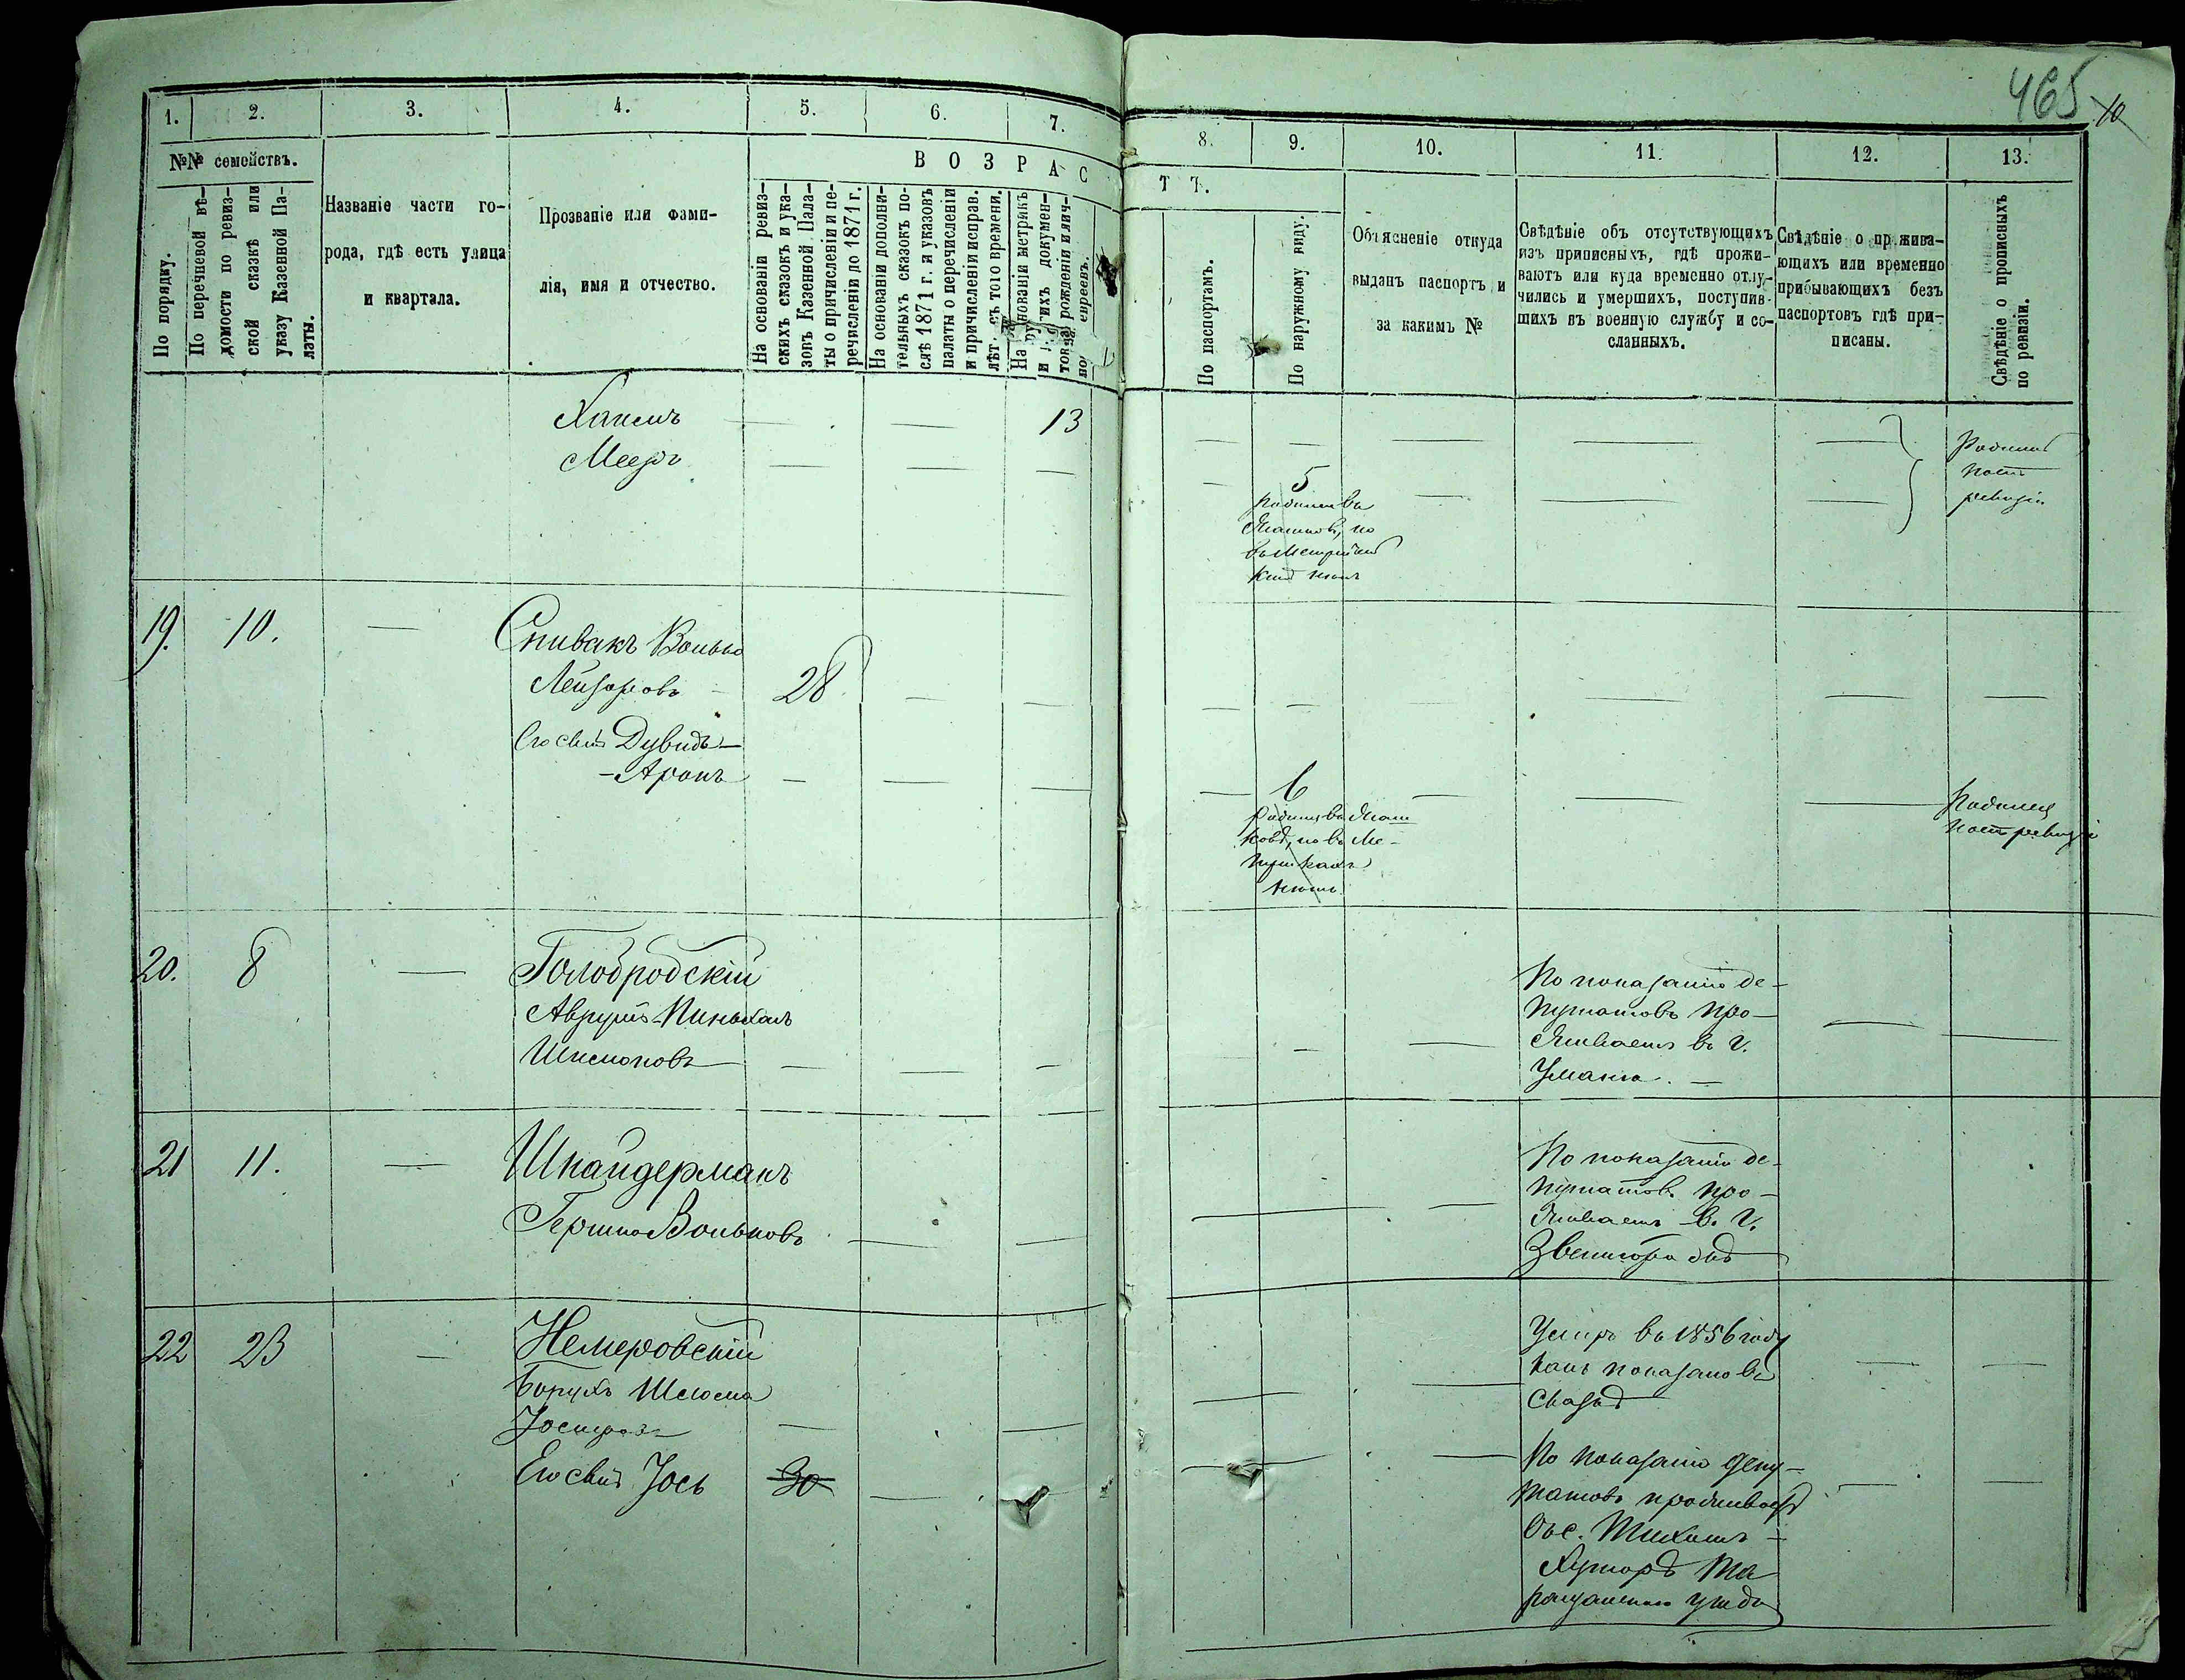 465
10
1.
2.
3.
4.
5.
6.
7.
8.
9.
10.
11.
12.
13.
№№ семействъ.
По порядку.
По перечневой вѣ-
домости по ревиз-
ской сказкѣ или
указу Казенной Па-
латы.
Названіе части го-
рода, гдѣ есть улица
и квартала.
Прозваніе или фами-
лія, имя и отчество.
В О З Р А С
Т Ъ.
На основаніи ревиз-
скихъ сказокъ и ука-
зовъ Казенной Пала-
ты о причисленіи и пе-
речисленіи до 1871 г.
На основаніи дополни-
тельныхъ сказокъ по-
слѣ 1871 г. и указовъ
палаты о перечисленіи
и причисленіи исправ.
лѣт. съ того времени.
На основаніи метрикъ
и другихъ докумен-
товъ о рожденіи и лич-
евреевъ.
По паспортамъ.
По наружному виду.
Объясненіе откуда
выданъ паспортъ и
за какимъ №
Свѣдѣніе объ отсутствующихъ
изъ приписныхъ, гдѣ прожи-
ваютъ или куда временно отлу-
чились и умершихъ, поступив-
шихъ въ военную службу и со-
сланныхъ.
Свѣдѣніе о прожива-
ющихъ или временно
прибывающихъ безъ
паспортовъ гдѣ при-
писаны.
Свѣдѣніе о прописныхъ
по ревизіи.
Хаимъ 13
Мееръ 5
въ
но
Родился
послѣ
ревизіи
19. 10. Спивакъ Волько
Лейзоровъ 28
Его сынъ Дувидъ-
-Аронъ 6
Родился
послѣ ревизіи
20. 8 Голобродскій
Аврумъ-Пиньхасъ
Шимоновъ
По показанію де-
путатовъ про-
живаетъ въ г.
Умань.
21 11. Шнайдерманъ
Гершко Вольковъ
По показанію де-
путатовъ про-
живаетъ въ г.
Звенигородкѣ
22 23 Немеровскій
Борухъ Шлиома
Его сынъ Іось 30
Умеръ въ 1856 году
какъ показано въ
сказкѣ
По показанію депу-
татовъ проживаетъ
въ с. Тихомъ-
Хуторѣ Та
ращанскаго уѣзда